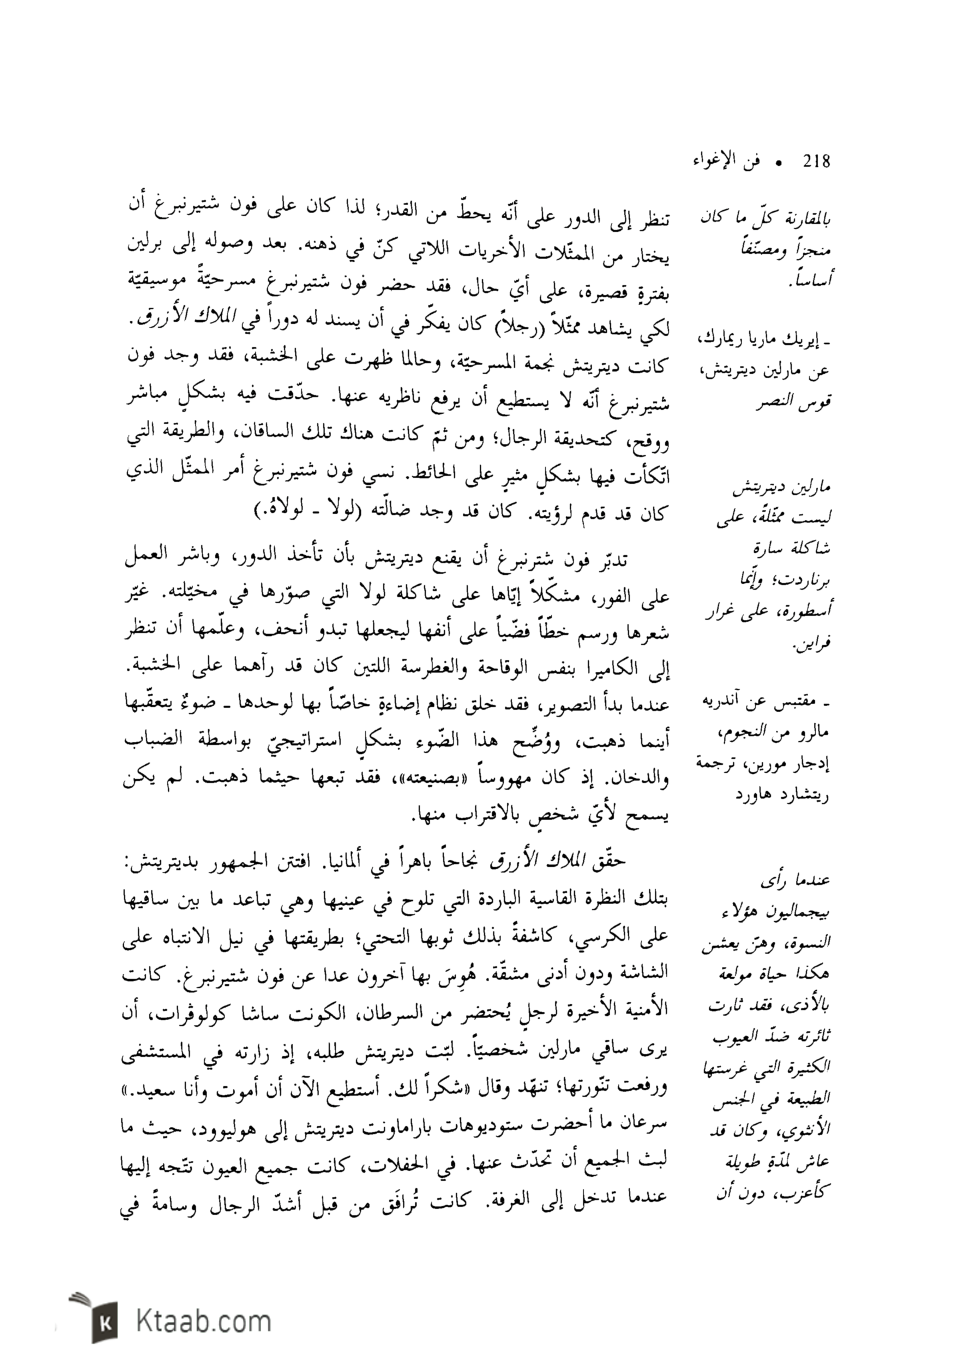 218 • فن الإغواء
بالمقارنة كلّ ما كان
منجزاً ومصنّفاً
أساساً.
ـ إيريك ماريا ريمارك،
عن مارلين ديتريتش،
قوس النصر
مارلين ديتريتش
ليست ممثّلةً، على
شاكلة سارة
برناردت؛ وإنّما
أسطورة، على غرار
فراين.
ـ مقتبس عن آندريه
مالرو من النجوم،
إدجار مورين، ترجمة
ريتشارد هاورد
عندما رأى
بيجماليون هؤلاء
النسوة، وهنّ يعشن
هكذا حياة مولعة
بالأذى، فقد ثارت
ثائرته ضدّ العيوب
الكثيرة التي غرستها
الطبيعة في الجنس
الأنثوي، وكان قد
عاش لمدّةٍ طويلة
كأعزب، دون أن
تنظر إلى الدور على أنّه يحطّ من القدر؛ لذا كان على فون شتيرنبرغ أن
يختار من الممثّلات الأخريات اللاتي كنّ في ذهنه. بعد وصوله إلى برلين
بفترةٍ قصيرة، على أيّ حال، فقد حضر فون شتيرنبرغ مسرحيّةً موسيقيّة
لكي يشاهد ممثّلاً (رجلاً) كان يفكّر في أن يسند له دوراً في الملاك الأزرق.
كانت ديتريتش نجمة المسرحيّة، وحالما ظهرت على الخشبة، فقد وجد فون
شتيرنبرغ أنّه لا يستطيع أن يرفع ناظريه عنها. حدّقت فيه بشكلٍ مباشر
ووقح، كتحديقة الرجال؛ ومن ثمّ كانت هناك تلك الساقان، والطريقة التي
اتّكأت فيها بشكلٍ مثيرٍ على الحائط. نسي فون شتيرنبرغ أمر الممثّل الذي
كان قد قدم لرؤيته. كان قد وجد ضالّته (لولا ـ لولاهُ.)
تدبّر فون شترنبرغ أن يقنع ديتريتش بأن تأخذ الدور، وباشر العمل
على الفور، مشكّلاً إيّاها على شاكلة لولا التي صوّرها في مخيّلته. غيّر
شعرها ورسم خطّاً فضّياً على أنفها ليجعلها تبدو أنحف، وعلّمها أن تنظر
إلى الكاميرا بنفس الوقاحة والغطرسة اللتين كان قد رآهما على الخشبة.
عندما بدأ التصوير، فقد خلق نظام إضاءةٍ خاصّاً بها لوحدها ـ ضوءٌ يتعقّبها
أينما ذهبت، ووُضِّح هذا الضّوء بشكلٍ استراتيجيّ بواسطة الضباب
والدخان. إذ كان مهووساً «بصنيعته»، فقد تبعها حيثما ذهبت. لم يكن
يسمح لأيّ شخصٍ بالاقتراب منها.
حقّق الملاك الأزرق نجاحاً باهراً في ألمانيا. افتتن الجمهور بديتريتش:
بتلك النظرة القاسية الباردة التي تلوح في عينيها وهي تباعد ما بين ساقيها
على الكرسي، كاشفةً بذلك ثوبها التحتي؛ بطريقتها في نيل الانتباه على
الشاشة ودون أدنى مشقّة. هُوِسَ بها آخرون عدا عن فون شتيرنبرغ. كانت
الأمنية الأخيرة لرجلٍ يُحتضر من السرطان، الكونت ساشا كولوڤرات، أن
يرى ساقي مارلين شخصيّاً. لبّت ديتريتش طلبه، إذ زارته في المستشفى
ورفعت تنّورتها؛ تنهّد وقال «شكراً لك. أستطيع الآن أن أموت وأنا سعيد.»
سرعان ما أحضرت ستوديوهات باراماونت ديتريتش إلى هوليوود، حيث ما
لبث الجميع أن تحدّث عنها. في الحفلات، كانت جميع العيون تتّجه إليها
عندما تدخل إلى الغرفة. كانت تُرافَق من قبل أشدّ الرجال وسامةً في
Ktaab.com